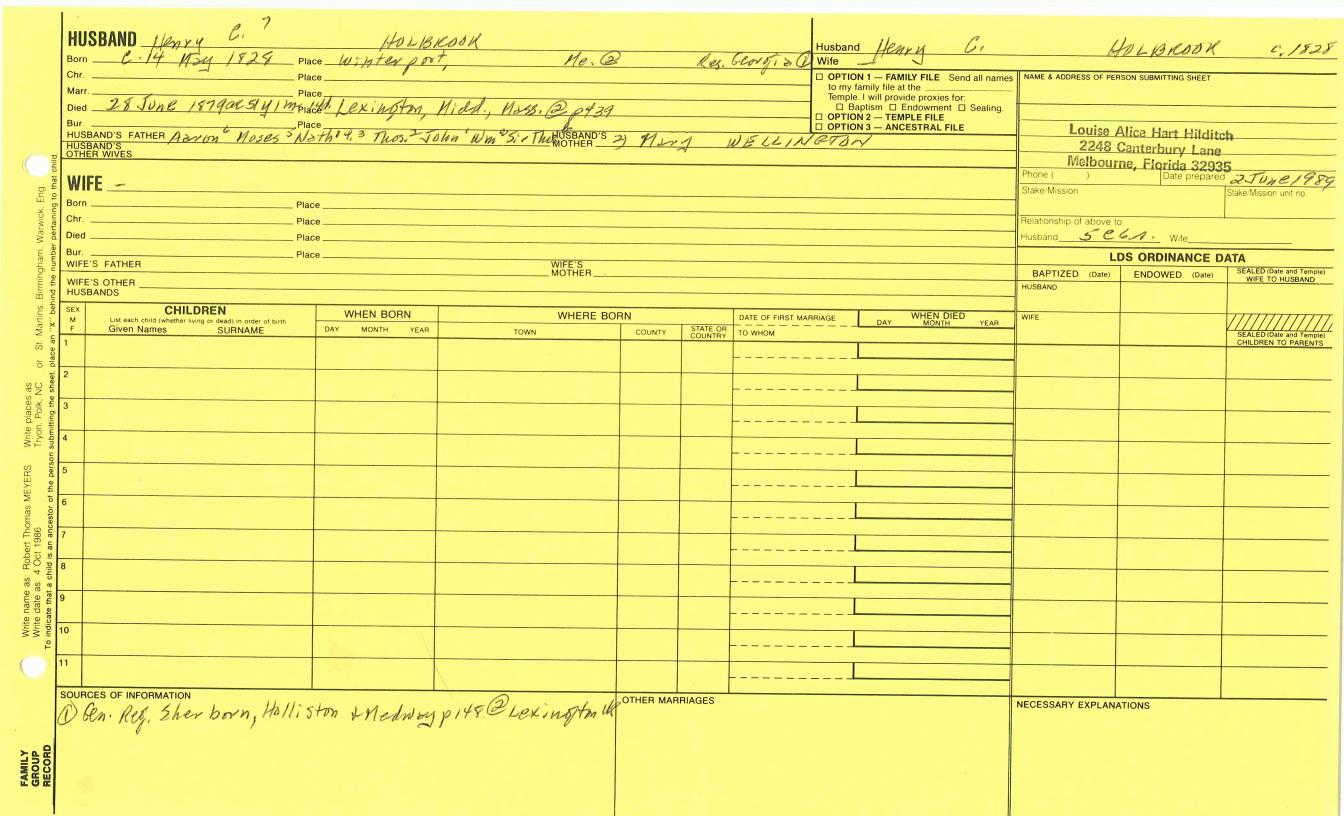 HUSBAND Henry C. 7 HOLBROOK
Born c. 14 May 1828 Place Winterport, Me. ② Res. Georgia ①
Chr. Place
Marr. Place
Died 28 June 1879 ae 51y 1m 14d Place Lexington, Midd., Mass. ② p439
Bur. Place
HUSBAND'S FATHER Aaron⁶ Moses⁵ Nath'l⁴,³ Thos.² John¹ Wm⁰ Sir Thos HUSBAND'S MOTHER 2) Mary WELLINGTON
HUSBAND'S OTHER WIVES
WIFE –
Born Place
Chr. Place
Died Place
Bur. Place
WIFE'S FATHER WIFE'S MOTHER
WIFE'S OTHER HUSBANDS
Husband Henry C. HOLBROOK c. 1828
Wife
☐ OPTION 1 — FAMILY FILE Send all names
to my family file at the
Temple. I will provide proxies for:
☐ Baptism ☐ Endowment ☐ Sealing.
☐ OPTION 2 — TEMPLE FILE
☐ OPTION 3 — ANCESTRAL FILE
NAME & ADDRESS OF PERSON SUBMITTING SHEET
Louise Alice Hart Hilditch
2248 Canterbury Lane
Melbourne, Florida 32935
Phone ( ) Date prepared 2 June 1989
Stake/Mission Stake/Mission unit no.
Relationship of above to
Husband 5C6r. Wife
LDS ORDINANCE DATA
BAPTIZED (Date) ENDOWED (Date) SEALED (Date and Temple) WIFE TO HUSBAND
HUSBAND
WIFE
SEALED (Date and Temple) CHILDREN TO PARENTS
SEX M F
CHILDREN
List each child (whether living or dead) in order of birth
Given Names SURNAME
WHEN BORN
DAY MONTH YEAR
WHERE BORN
TOWN COUNTY STATE OR COUNTRY
DATE OF FIRST MARRIAGE
TO WHOM
WHEN DIED
DAY MONTH YEAR
1
2
3
4
5
6
7
8
9
10
11
SOURCES OF INFORMATION
① Gen. Reg. Sherborn, Holliston & Medway p148 ② Lexington VR
OTHER MARRIAGES
NECESSARY EXPLANATIONS
Write name as: Robert Thomas MEYERS Write places as
Write date as: 4 Oct 1986 Tryon, Polk, NC or St. Martins, Birmingham, Warwick, Eng.
To indicate that a child is an ancestor of the person submitting the sheet, place an "X" behind the number pertaining to that child
FAMILY GROUP RECORD